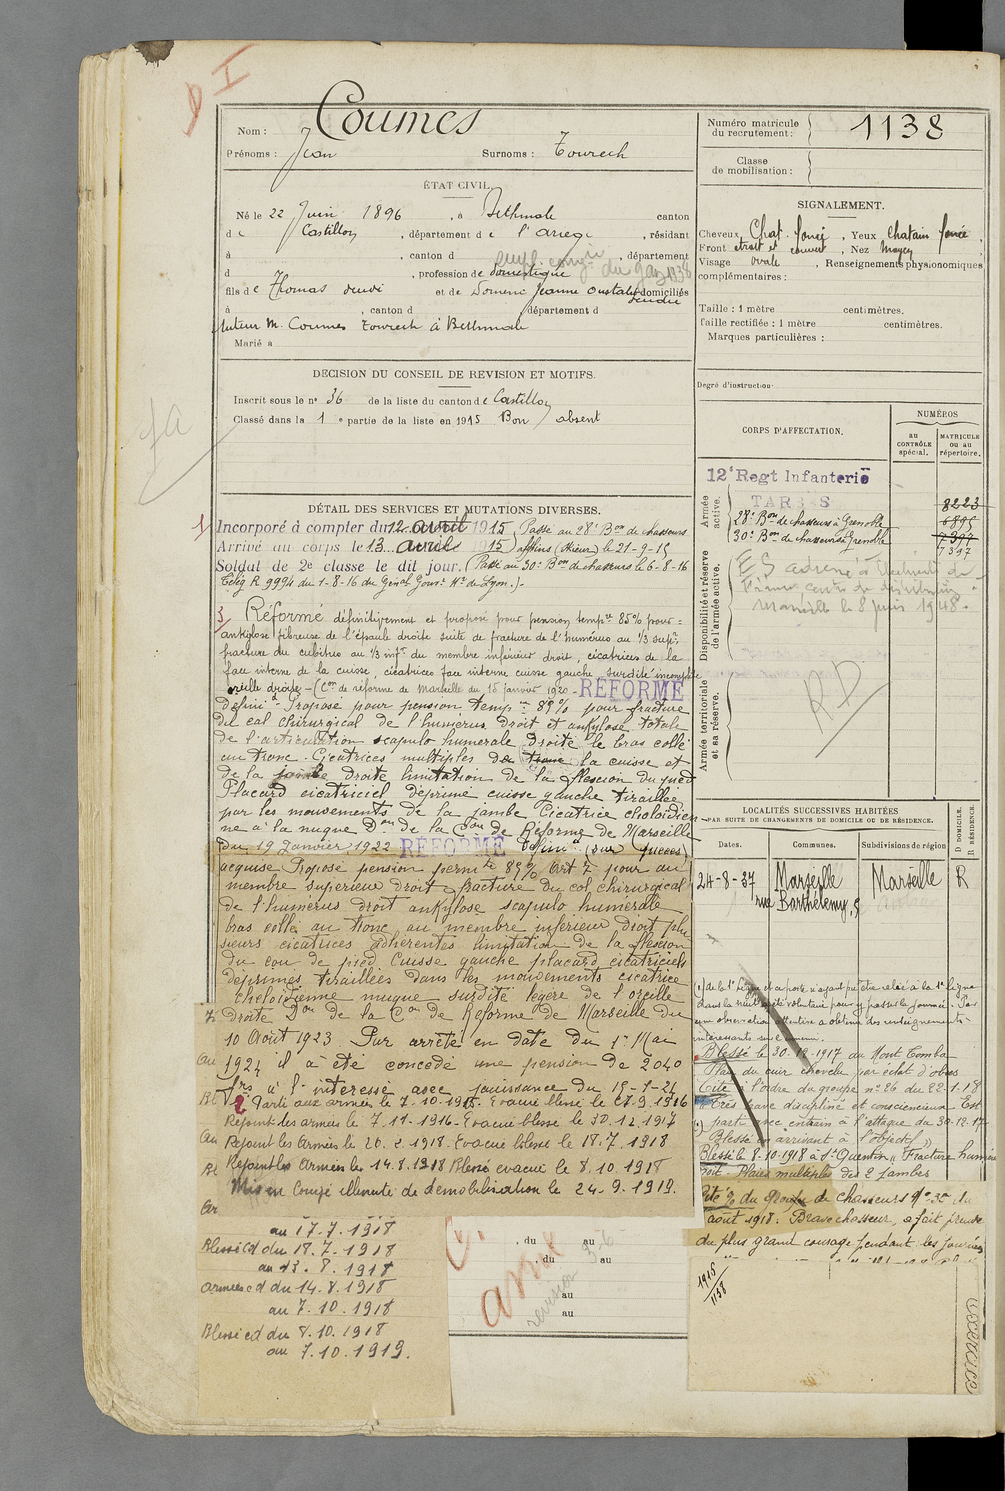 D I
Nom : Coumes
Prénoms : Jean Surnoms : Tourech
ÉTAT CIVIL.
Né le 22 Juin 1896, à Bethmale canton
de Castillon, département de l'ariege, résidant
à , canton d , département
d , profession de domestique
empl. congé du gaz 1938
fils de Thomas et de Domenc Jeanne domiciliés
à , canton d département d
tuteur M. Coumes Tourech à Bethmale
Marié à
DÉCISION DU CONSEIL DE REVISION ET MOTIFS.
Inscrit sous le n° 36 de la liste du canton de Castillon
Classé dans la 1e partie de la liste en 1915 Bon absent
DÉTAIL DES SERVICES ET MUTATIONS DIVERSES.
Incorporé à compter du 12 avril 1915 (Passé au 28e Bon de chasseurs
Arrivé au corps le 13 avril 1915 alpins (Skieur) le 21-9-15
Soldat de 2e classe le dit jour. (Passé au 30e Bon de chasseurs le 6-8-16
Télég R. 9994 du 1-8-16 du Génal Gouv. Mre de Lyon.)-
3 Réformé définitivement et proposé pour pension tempre 85% pour =
ankylose fibreuse de l'épaule droite suite de fracture de l'humérus au 1/3 supr,
fracture du cubitus au 1/3 infr du membre inférieur droit, cicatrices de la
face interne de la cuisse, cicatrices face interne cuisse gauche, surdité incomplète
oreille droite - (Con de réforme de Marseille du 15 janvier 1920 - RÉFORMÉ
Définit Proposé pour pension tempre 89% pour fracture
du col chirurgical de l'humerus droit et ankylose totale
de l'articulation scapulo humerale droite le bras collé
au tronc. Cicatrices multiples de tronc la cuisse et
de la jambe droite limitation de la flexion du pied
Placard cicatriciel déprimé cuisse gauche tiraillée
par les mouvements de la jambe Cicatrice cheloïdien
ne à la nuque Don de la Con de Réforme de Marseille
du 19 Janvier 1922 RÉFORMÉ Définit (sur pièces)
acquise Proposé pension permte 89% Art 7 pour au
membre superieur droit fracture du col chirurgical
de l'humérus droit ankylose scapulo humérale
bras collé au tronc au membre inférieur droit plu
sieurs cicatrices adhérentes limitation de la flexion
du cou de pied Cuisse gauche placard cicatriciels
déprimés tiraillées dans les mouvements cicatrice
cheloïdienne nuque surdité légère de l'oreille
Droite Don de la Con de Réforme de Marseille du
10 Août 1923. Par arrêté en date du 1er Mai
1924 il a été concédé une pension de 2040
frs à l'interessé avec jouissance du 15-1-21
2 Parti aux armées le 7.10.1915. Evacué blessé le 9.1916
Rejoint les armées le 7.11.1916. Evacué blessé le 30.12.1917
Rejoint les Armées le 20.2.1918. Evacué blessé le 18.7.1918
Rejoint les Armées le 14.8.1918 Blessé evacué le 8.10.1918
Mis en Congé illimité de démobilisation le 24.9.1919.
au 17.7.1918
Blessé cd du 18.7.1918
au 13.8.1918
armées cd du 14.8.1918
au 7.10.1918
Blessé cd du 8.10.1918
au 7.10.1919.
, du au
, du au
au
au
Numéro matricule du recrutement : 1138
Classe de mobilisation :
SIGNALEMENT.
Cheveux Chat. foncé, Yeux Chatain foncé
Front étroit et couvert, Nez Moyen
Visage ovale, Renseignements physionomiques
complémentaires :
Taille : 1 mètre centimètres.
Taille rectifiée : 1 mètre centimètres.
Marques particulières :
Degré d'instruction
CORPS D'AFFECTATION.
NUMÉROS
au CONTRÔLE spécial.
MATRICULE ou au répertoire.
Armée active.
12e Regt Infanterie
TARBES 8223
28e Bon de chasseurs à Grenoble 6895
30e Bon de chasseurs à Grenoble 7397
7397
Disponibilité et réserve de l'armée active.
Marseille le 8 juin 1948.
Armée territoriale et sa réserve.
RD
LOCALITÉS SUCCESSIVES HABITÉES
PAR SUITE DE CHANGEMENTS DE DOMICILE OU DE RÉSIDENCE.
D DOMICILE. R RÉSIDENCE.
Dates. Communes. Subdivisions de région
24-8-37 Marseille Marseille R
rue Barthélemy, 9
(1) de la 1re Ligne et ce poste n'ayant pu être relié à la 1re ligne
dans la nuit est resté volontaire pour y passer la journée. Par
une observation attentive a obtenu des renseignements
intéressants sur l'ennemi.
Blessé le 30.12.1917 au Mont Tomba
Plaie du cuir chevelu par éclat d'obus
Cité à l'ordre du groupe n° 26 du 22-1-18
"Très brave discipliné et consciencieux. Est
parti avec entrain à l'attaque du 30-12-17.
Blessé en arrivant à l'objectif"
Blessé le 8-10-1918 à St Quentin "Fracture humérus
droit - Plaies multiples des 2 jambes
Cité o/o du Groupe de chasseurs N° 30 du
août 1918: Brave chasseur, a fait preuve
du plus grand courage pendant les journées
1915
1138